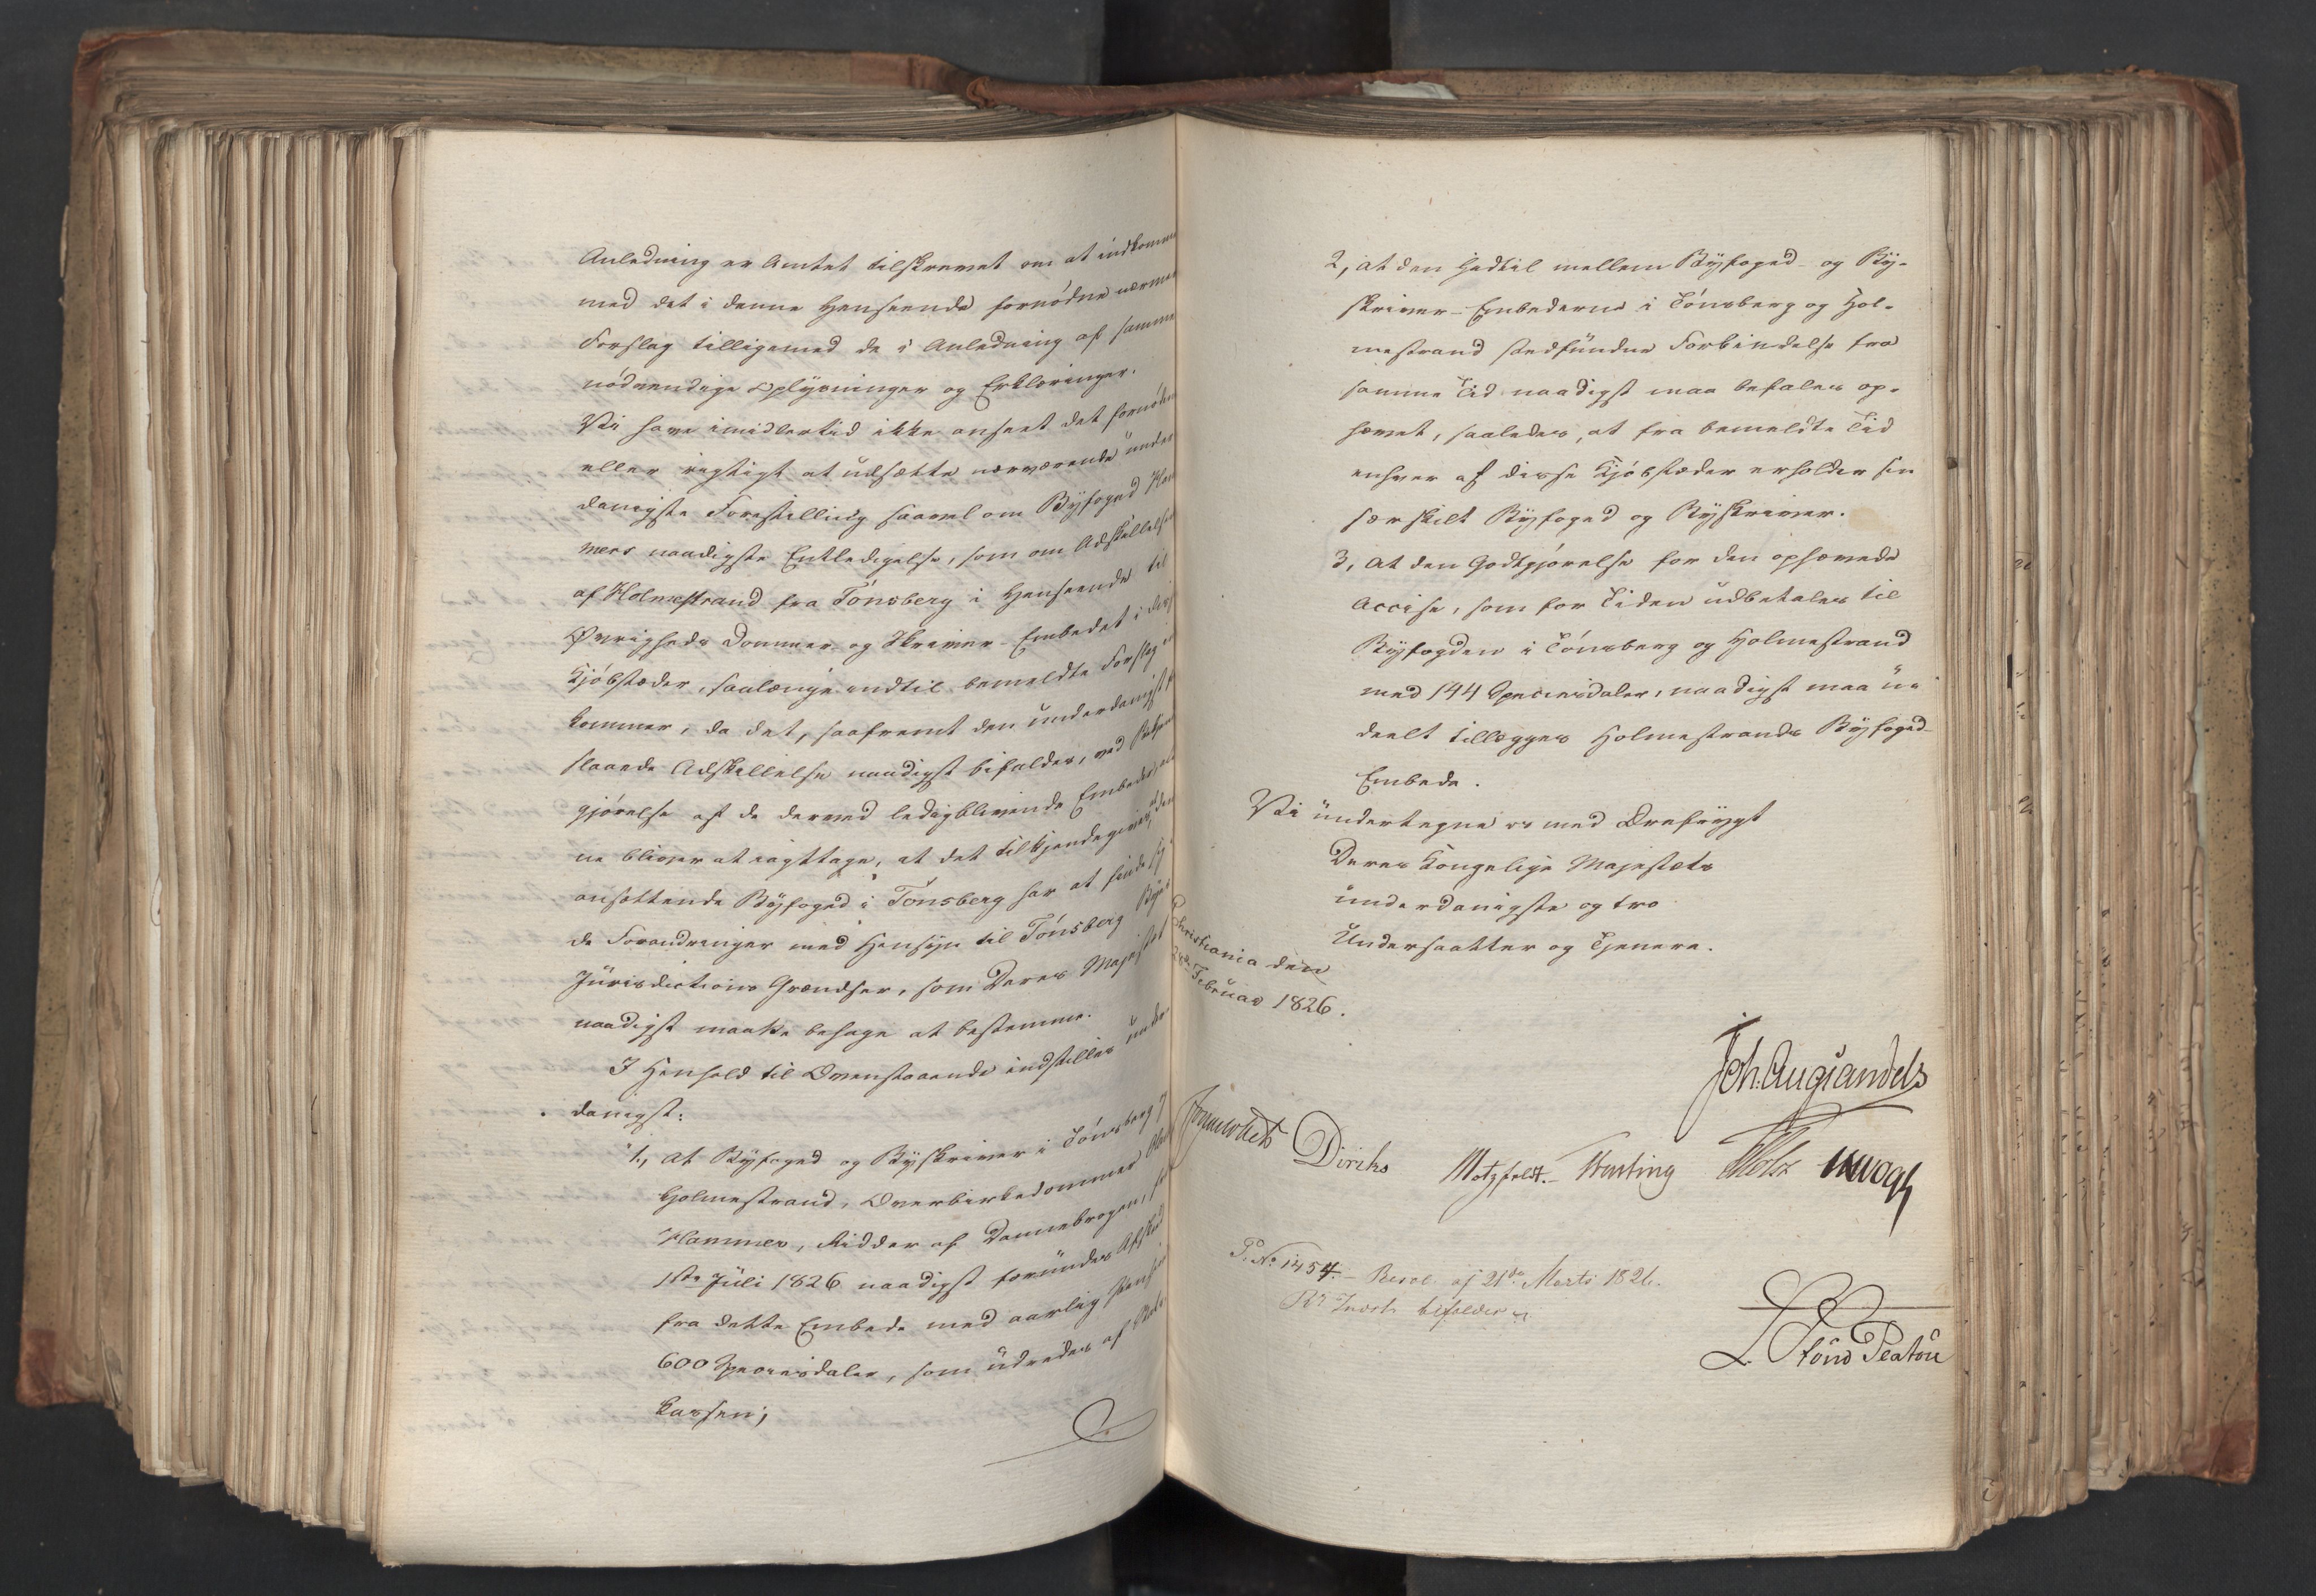 Anledning er Amtet tilskrevet om at indkomme
med det i denne Henseende fornødne nærmere
Forslag tilligemed de i Anledning af samme
nødvendige Oplysninger og Erklæringer.
Vi have imidlertid ikke anseet det fornødent
eller rigtigt at udsætte nærværende under
danigste Forestilling saavel om Byfoged Ham
mers naadigste Entledigelse, som om Adskillelsen
af Holmestrand fra Tønsberg i Henseende til
Øvrigheds Dommer- og Skriver-Embedet i disse
Kjøbstæder, saalænge indtil bemeldte Forslag ind
kommer, da det, saafremt den underdanigst fore
slaaede Adskillelse naadigst bifaldes, ved Bekjendt
gjørelse af de derved ledigblivende Embeder ale
ne bliver at iagttage, at det tilkjendegives, at den
ansættende Byfoged i Tønsberg har at finde sig i
de Forandringer med Hensyn til Tønsberg Byes
Jurisdictions Grændser, som Deres Majestæt
naadigst maatte behage at bestemme.
I Henhold til Ovenstaaende indstilles under
danigst:
1, At Byfoged og Byskriver i Tønsberg og
Holmestrand, Overbirkedommer
Hammer, Ridder af Dannebrogen, fra
1ste Juli 1826 naadigst forundes Afsked
fra dette Embede med aarlig Pension
600 Speciesdaler, som udredes af Stats
kassen;
2, at den hidtil mellem Byfoged- og By-
skriver-Embederne i Tønsberg og Hol-
mestrand stedfundne Forbindelse fra
samme Tid naadigst maa befales op-
hævet, saaledes, at fra bemeldte Tid
enhver af disse Kjøbstæder erholder sin
særskilt Byfoged og Byskriver.
3, at den Godtgjørelse for den ophævede
Accise, som for Tiden udbetales til
Byfogden i Tønsberg og Holmestrand
med 144 Speciesdaler, naadigst maa u-
deelt tillægges Holmestrands Byfoged-
Embede.
Vi undertegne os med Ærefrygt
Deres Kongelige Majestæts
underdanigste og troe
Undersaatter og Tjenere.
Christiania den
28de Februar 1826.
Joh. Aug. Sandels
Sommerhielm Diriks Motzfeldt. Fasting Holst JHVogt
P. No 1454. Resol. af 21de Marts 1826.
Rs Indst. bifaldes
L. Stoud Platou